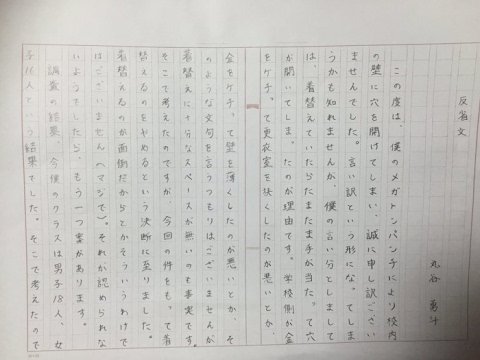 反省文
丸谷勇斗
この度は、僕のメガトンパンチにより校内
の壁に穴を開けてしまい、誠に申し訳ござい
ませんでした。言い訳という形になってしま
うかも知れませんが、僕の言い分としまして
は、着替えていたらたまたま手が当たって穴
が開いてしまったのが理由です。学校側が金
をケチって更衣室を狭くしたのが悪いとか、
金をケチって壁を薄くしたのが悪いとか、そ
のような文句を言うつもりはございませんが
着替えに十分なスペースが無いのも事実です。
そこで考えたのですが、今回の件をもって着
替えるのをやめるという決断に至りました。
着替えるのが面倒だからとかそういうわけで
はございません(マジで)。それが認められな
いようでしたら、もう一つ案があります。
調査の結果、今僕のクラスは男子18人、女
子16人という結果でした。そこで考えたので